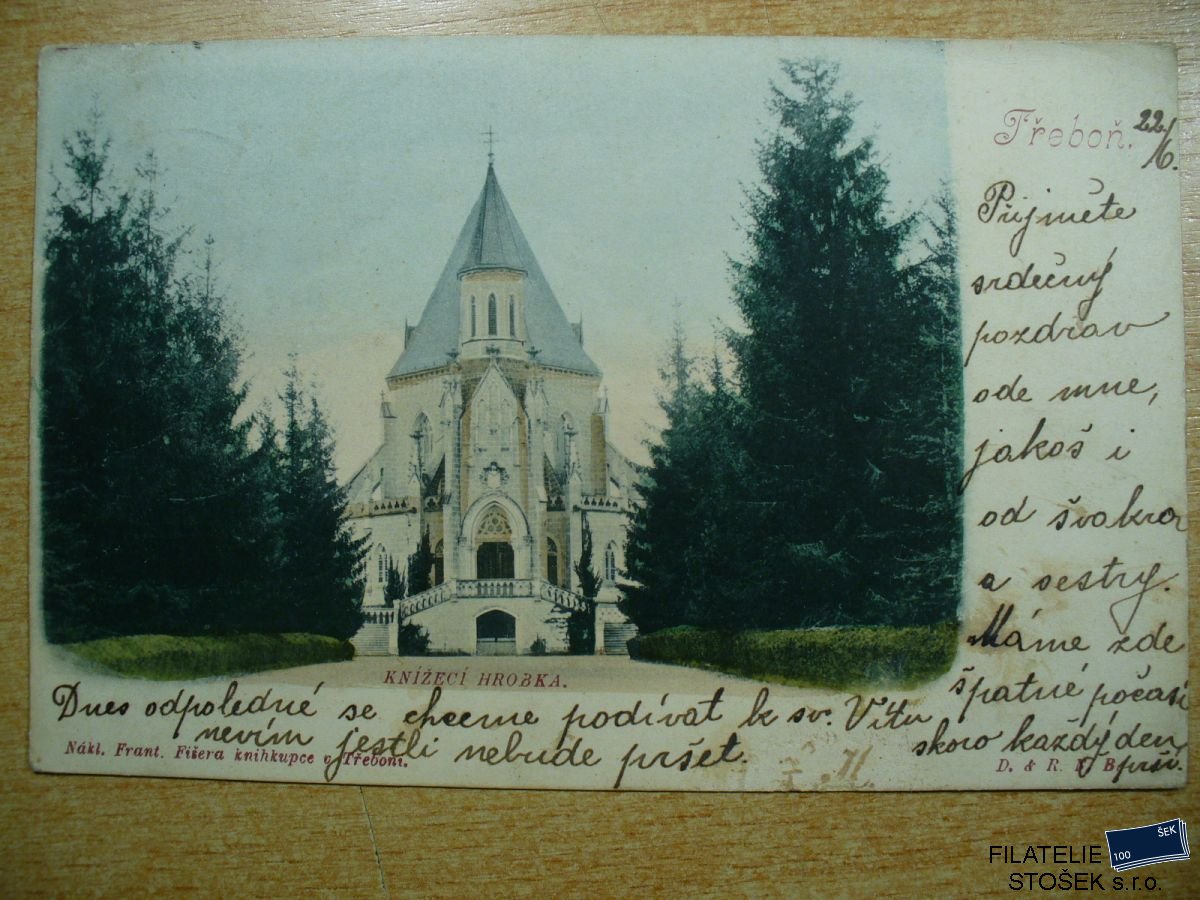 Třeboň.
22/6.
Přijměte
srdečný
pozdrav
ode mne,
jakož i
od švakra
a sestry.
Máme zde
špatné počasí
skoro každý den
prší.
KNÍŽECÍ HROBKA.
Dnes odpoledne se chceme podívat k sv. Vítu
nevím jestli nebude pršet.
Nákl. Frant. Fišera knihkupce v Třeboni.
D. & R. B.
FILATELIE
STOŠEK s.r.o.
100
ŠEK